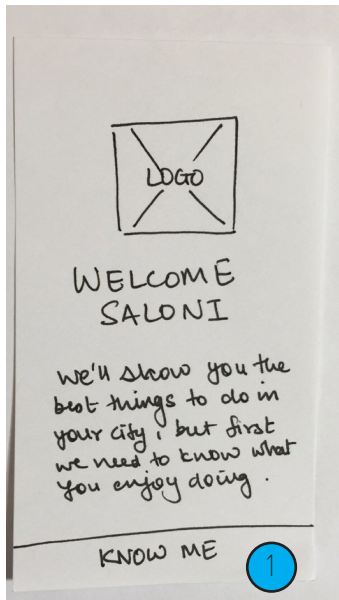 LOGO
WELCOME
SALONI
We'll show you the
best things to do in
your city, but first
we need to know what
you enjoy doing.
KNOW ME
1